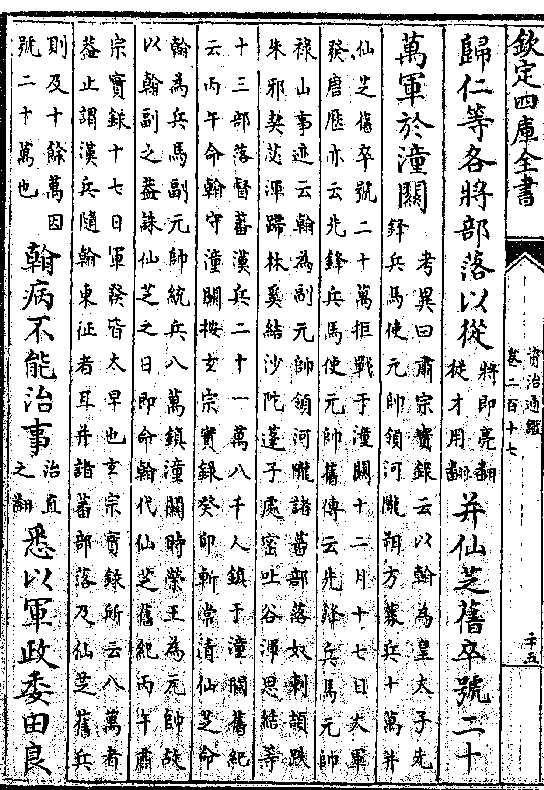 欽定四庫全書
資治通鑑
卷二百十七
二十五
歸仁等各將部落以從
將即亮翻
從才用翻
并仙芝舊卒號二十
萬軍於潼關
考異曰肅宗實録云以翰為皇太子先
鋒兵馬使元帥領河隴朔方募兵十萬并
仙芝舊卒號二十萬拒戰于潼關十二月十七日大軍
發唐歷亦云先鋒兵馬使元帥舊傳云先鋒兵馬元帥
禄山事迹云翰為副元帥領河隴諸蕃部落奴剌頡跌
朱邪契苾渾蹛林奚結沙陀蓬子處密吐谷渾思結等
十三部落督蕃漢兵二十一萬八千人鎮于潼關舊紀
云丙午命翰守潼關按玄宗實録癸卯斬常清仙芝命
翰為兵馬副元帥統兵八萬鎮潼關時榮王為元帥故
以翰副之葢誅仙芝之日即命翰代仙芝舊紀丙午肅
宗實録十七日軍發皆太早也玄宗實録所云八萬者
葢止謂漢兵隨翰東征者耳并諸蕃部落及仙芝舊兵
則及十餘萬因
號二十萬也
翰病不能治事
治直
之翻
悉以軍政委田良